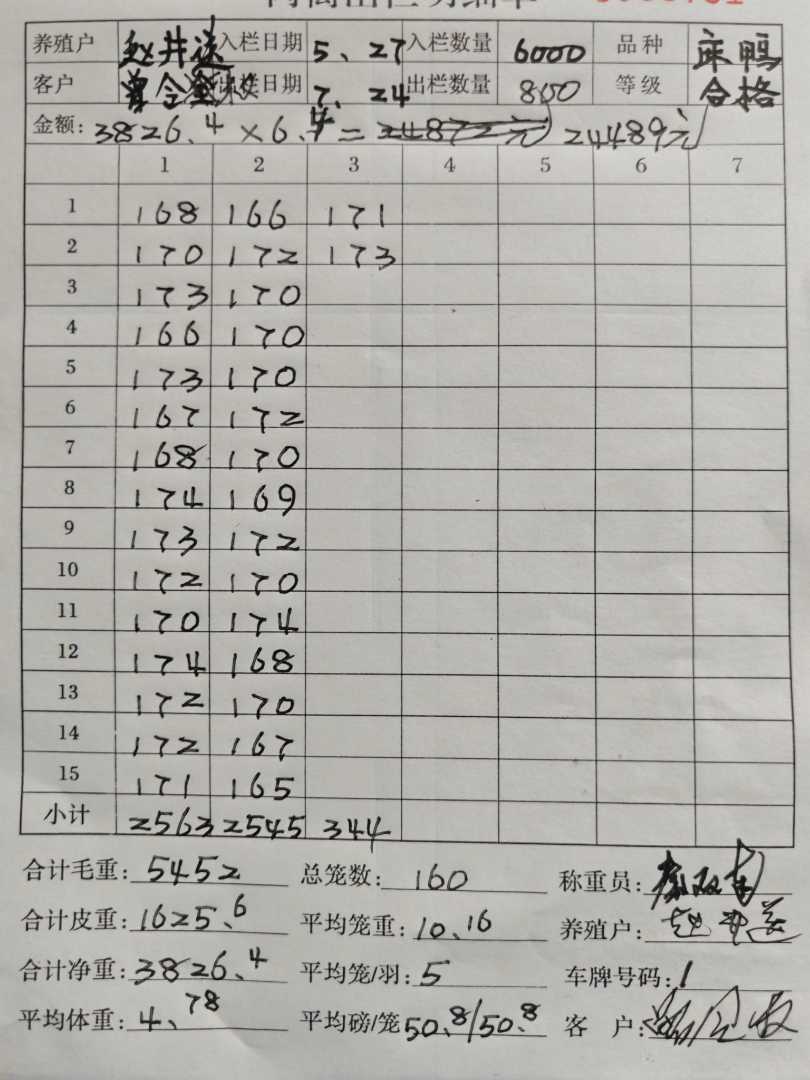 养殖户 赵井送 入栏日期 5、27 入栏数量 6000 品种 床鸭
客户 曾令 出栏日期 7、24 出栏数量 800 等级 合格
金额: 3826.4 × 6.4 = 24872元 24489元
1 2 3 4 5 6 7
1 168 166 171
2 170 172 173
3 173 170
4 166 170
5 173 170
6 167 172
7 168 170
8 174 169
9 173 172
10 172 170
11 170 174
12 174 168
13 172 170
14 172 167
15 171 165
小计 2563 2545 344
合计毛重: 5452 总笼数: 160 称重员:
合计皮重: 1625.6 平均笼重: 10.16 养殖户: 赵井送
合计净重: 3826.4 平均笼/羽: 5 车牌号码: 1
平均体重: 4.78 平均磅/笼 50.8/50.8 客 户: